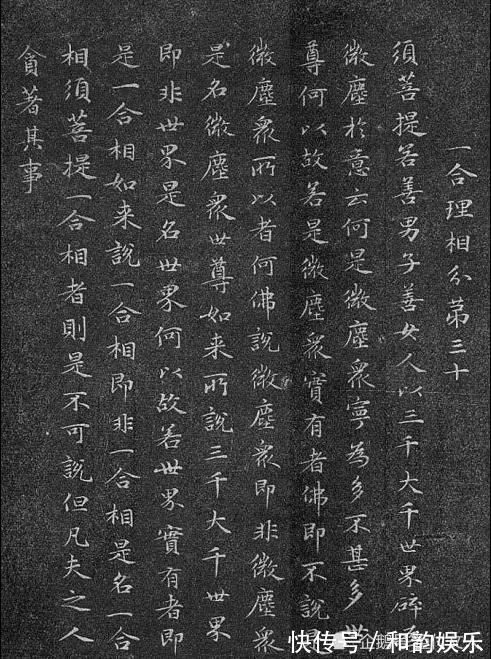 一合理相分第三十
須菩提若善男子善女人以三千大千世界碎
微塵於意云何是微塵衆寧為多不甚多世
尊何以故若是微塵衆實有者佛即不說
微塵衆所以者何佛說微塵衆即非微塵衆
是名微塵衆世尊如来所說三千大千世界
即非世界是名世界何以故若世界實有者即
是一合相如来說一合相即非一合相是名一合
相須菩提一合相者則是不可說但凡夫之人
貪著其事
快传号 / 和韵娱乐